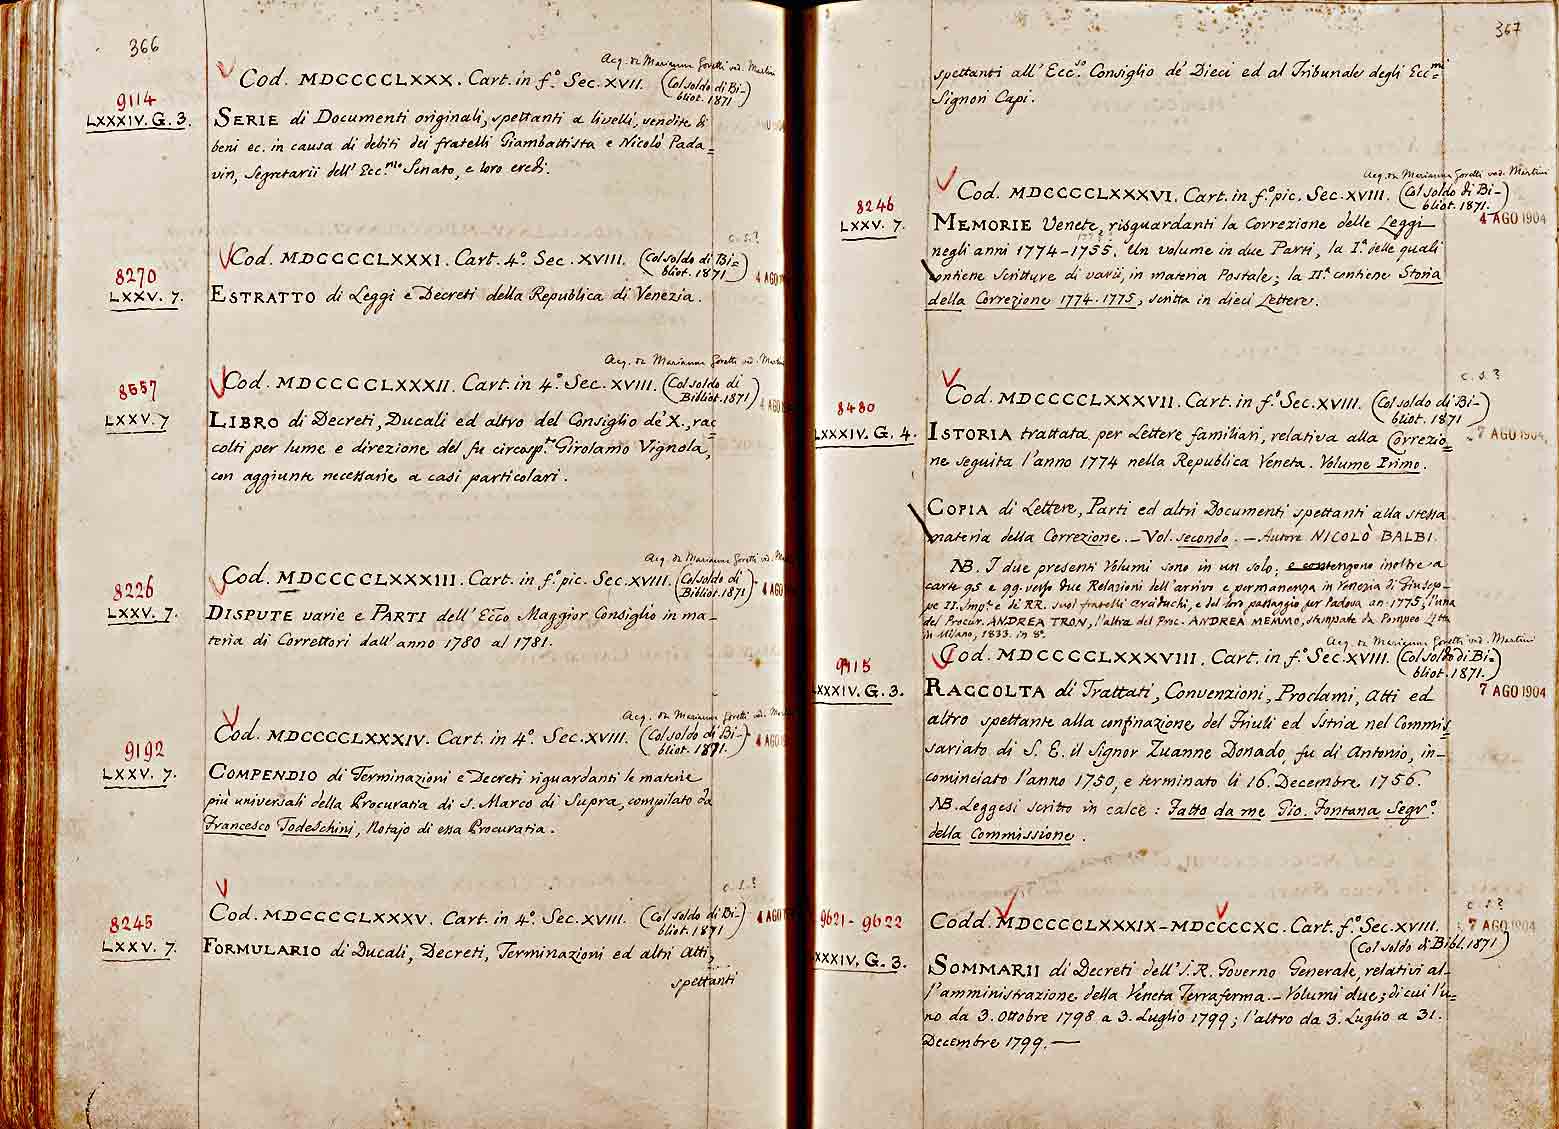 366
Acq. da Marianna Goretti ved. Martini
Cod. MDCCCCLXXX. Cart. in f.º Sec. XVII. (Col soldo di Bi-
bliot. 1871)
9114
LXXXIV. G. 3.
SERIE di Documenti originali, spettanti a livelli, vendite di
beni ec. in causa di debiti dei fratelli Giambattista e Nicolò Pada=
vin, Segretarii dell' Ecc.mo Senato, e loro eredi.
c. s.?
Cod. MDCCCCLXXXI. Cart. 4.º Sec. XVIII. (Col soldo di Bi=
bliot. 1871)
4 AGO
8270
LXXV. 7.
ESTRATTO di Leggi e Decreti della Republica di Venezia.
Acq. da Marianna Goretti ved. Mart
Cod. MDCCCCLXXXII. Cart. in 4.º Sec. XVIII. (Col soldo di
Bibliot. 1871)
4 AGO
8557
LXXV. 7
LIBRO di Decreti, Ducali ed altro del Consiglio de' X., rac
colti per lume e direzione del fu circosp.to Girolamo Vignola,
con aggiunte necessarie a casi particolari.
Acq. da Marianna Goretti ved. Ma
Cod. MDCCCCLXXXIII. Cart. in f.º pic. Sec. XVIII. (Col soldo di
Bibliot. 1871)
4 AGO
8226
LXXV. 7.
DISPUTE varie e PARTI dell' Ecc̃o Maggior Consiglio in ma-
teria di Correttori dall' anno 1780 al 1781.
Acq. da Marianna Goretti ved. Mar
Cod. MDCCCCLXXXIV. Cart. in 4.º Sec. XVIII. (Col soldo di Bi-
bliot. 1871.)
4 AGO
9192
LXXV. 7.
COMPENDIO di Terminazioni e Decreti riguardanti le materie
più universali della Procuratia di S. Marco di Supra, compilato da
Francesco Todeschini, Notajo di essa Procuratia.
c. s.?
Cod. MDCCCCLXXXV. Cart. in 4.º Sec. XVIII. (Col soldo di Bi-
bliot. 1871)
4 AGO
8245
LXXV. 7.
FORMULARIO di Ducali, Decreti, Terminazioni ed altri Atti,
spettanti
367
spettanti all' Ecc.so Consiglio de' Dieci ed al Tribunale degli Ecc=mi
Signori Capi.
Acq. da Marianna Goretti ved. Martini
Cod. MDCCCCLXXXVI. Cart. in f.º pic. Sec. XVIII. (Col soldo di Bi-
bliot. 1871.)
4 AGO 1904
8246
LXXV. 7.
MEMORIE Venete, risguardanti la Correzione delle Leggi
negli anni 1774-1755. Un volume in due Parti, la I.ª delle quali
contiene Scritture di varii, in materia Postale; la II.ª contiene Storia
della Correzione 1774-1775, scritta in dieci Lettere.
c. s.?
Cod. MDCCCCLXXXVII. Cart. in f.º Sec. XVIII. (Col soldo di Bi-
bliot. 1871)
7 AGO 1904
8480
LXXXIV. G. 4.
ISTORIA trattata per Lettere familiari, relativa alla Correzio=
ne seguita l'anno 1774 nella Republica Veneta. Volume Primo.
COPIA di Lettere, Parti ed altri Documenti spettanti alla stessa
materia della Correzione. - Vol. secondo. - Autore NICOLÒ BALBI.
NB. I due presenti Volumi sono in un solo; e contengono inoltre a
carte 95 e 99. verso due Relazioni dell' arrivo e permanenza in Venezia di Giusep-
pe II. Imp.e e di RR. suoi fratelli Arciduchi, e del loro passaggio per Padova an. 1775, l'una
del Procur. ANDREA TRON, l'altra del Proc. ANDREA MEMMO, stampate da Pompeo Litta
in Milano, 1833. in 8º.
Acq. da Marianna Goretti ved. Martini
Cod. MDCCCCLXXXVIII. Cart. in f.º Sec. XVIII. (Col soldo di Bi=
bliot. 1871.)
7 AGO 1904
9115
LXXXIV. G. 3.
RACCOLTA di Trattati, Convenzioni, Proclami, Atti ed
altro spettante alla confinazione del Friuli ed Istria nel Commis=
sariato di S. E. il Signor Zuanne Donado, fu di Antonio, in-
cominciato l'anno 1750, e terminato li 16. Decembre 1756.
NB. Leggesi scritto in calce: Fatto da me Gio. Fontana Segr.º
della Commissione.
c. s.?
Codd. MDCCCCLXXXIX-MDCCCCXC. Cart. f.º Sec. XVIII.
(Col soldo di Bibl. 1871)
7 AGO 1904
9621-9622
LXXXIV. G. 3.
SOMMARII di Decreti dell' I. R. Governo Generale, relativi al-
l'amministrazione della Veneta Terraferma. - Volumi due; di cui l'u=
no da 3. Ottobre 1798 a 3. Luglio 1799; l'altro da 3. Luglio a 31.
Decembre 1799.—